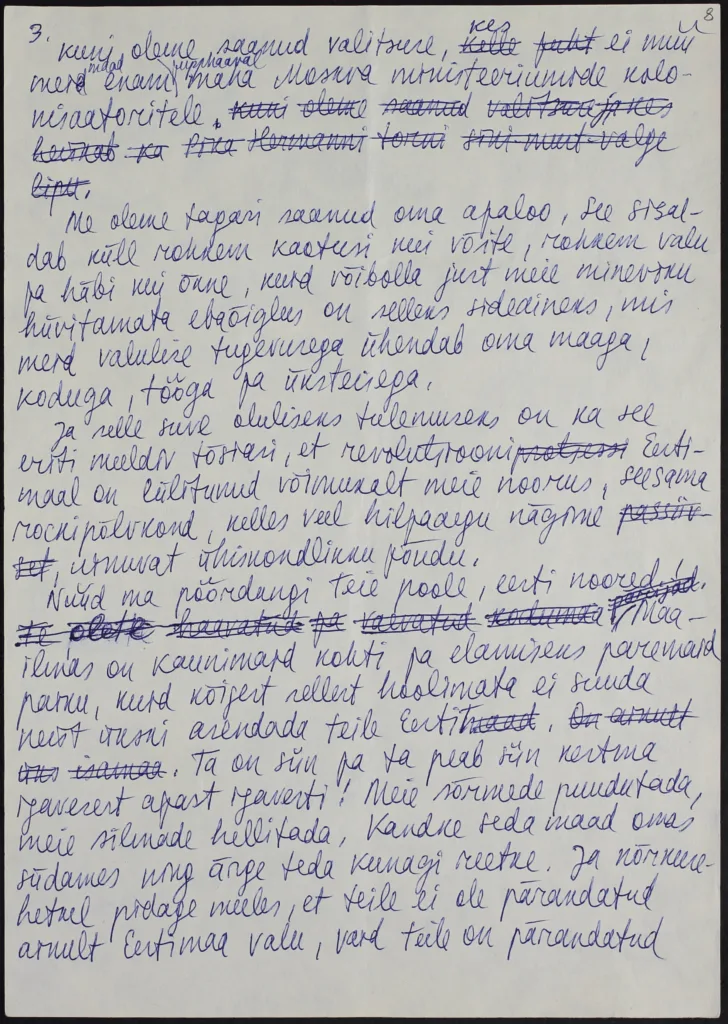 8
3.
kuni oleme saanud valitsuse, kes kelle puht ei müü
meid enam maad jupphaaval maha Moskva ministeeriumide kolo-
nisaatoritele, kuni oleme saanud valitsuse ja kes
heiskab ka Pika Hermanni torni sini-must-valge
lipu.
Me oleme tagasi saanud oma ajaloo, see sisal-
dab küll rohkem kaotusi kui võite, rohkem valu
ja häbi kui õnne, kuid võibolla just meie mineviku
hüvitamata ebaõiglus on selleks sideaineks, mis
meid valulise tugevusega ühendab oma maaga,
koduga, tööga ja üksteisega.
Ja selle suve oluliseks tulemuseks on ka see
eriti meeldiv tõsiasi, et revolutsiooniprotsessi Eesti-
maal on lülitunud võimukalt meie noorus, seesama
rockipõlvkond, kelles veel hiljaaegu nägime passiiv-
set, uinuvat ühiskondlikku jõudu.
Nüüd ma pöördungi teie poole, eesti noored!
Te olete haavatud ja vaevatud kodumaa pärijad. Maa-
ilmas on kaunimaid kohti ja elamiseks paremaid
paiku, kuid kõigest sellest hoolimata ei suuda
neist ükski asendada teile Eestimaad. On ainult
üks isamaa. Ta on siin ja ta peab siin kestma
igavesest ajast igavesti! Meie sõrmede puudutada,
meie silmade hellitada, kandke seda maad omas
südames ning ärge teda kunagi reetke. Ja nõrkuse-
hetkel pidage meeles, et teile ei ole pärandatud
ainult Eestimaa valu, vaid teile on pärandatud